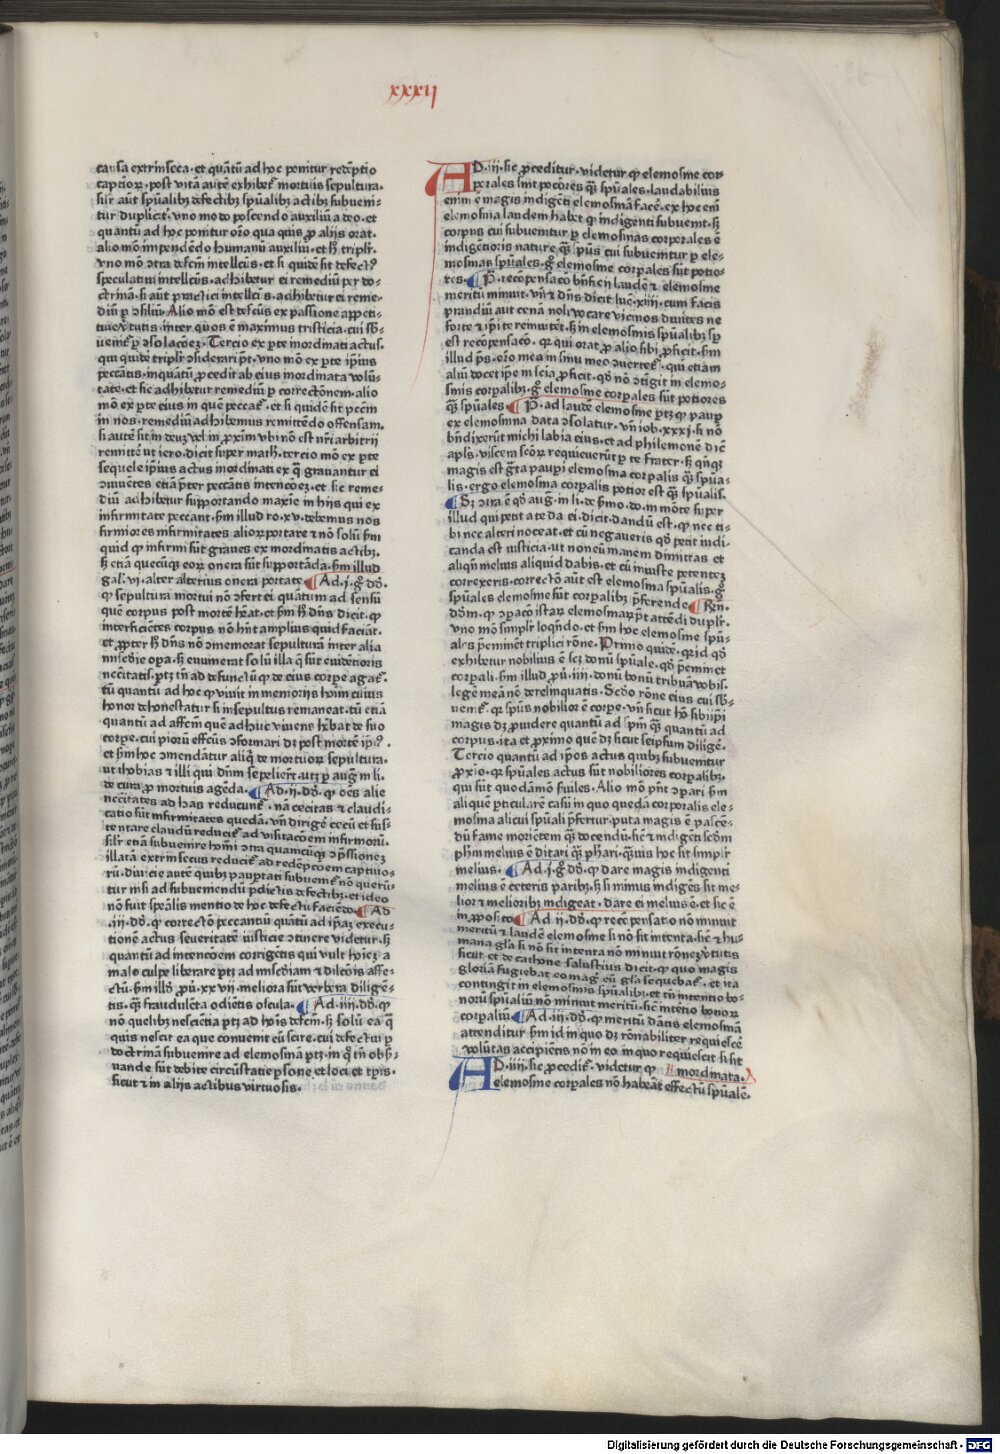 xxxij
causa extrinseca · et quātū ad hoc ponitur redēptio
captiuoꝝ · post vitā autē exhibet᷑ mortuis sepultura ·
Silr aūt spūalibꝫ defectibꝫ spūalibꝫ actibꝫ subueni-
tur duplicit᷑ · vno modo poscendo auxiliū a deo · et
quantū ad hoc ponitur oro̅ qua quis ꝓ alijs orat ·
alio mō impendēdo humanū auxiliū · et h̄ triplr̄ ·
vno mō ꝯtra defcm̄ intellcūs · et si quidē sit defectꝰ
speculatiui intellcūs · adhibetur ei remediū per do-
ctrinā · si aūt practici intellcūs · adhibetur ei reme-
diū ꝑ ꝯsiliū · Alio mō est defcūs ex passione appeti-
tiue v̓tutis · inter quos ē maximus tristicia · cui sb̄-
uenit᷑ ꝑ ꝯsolacōeꝫ · Tercio ex ꝑte inordinati actus ·
qui quidē triplr̄ ꝯsiderari pn̄t · vno mō ex ꝑte ip̄ius
peccātis · inquātū ꝓcedit ab eius inordinata volū-
tate · et sic adhibetur remediū ꝑ correctōnem · alio
mō ex ꝑte eius in quē peccat᷑ · et si quidē sit pccm̄
in nos · remediū adhibemus remittēdo offensam ·
si autē sit in deuꝫ vel in ꝓximū nō est nr̄i arbitrij
remittē ut iero · dicit super math · tercio mō ex ꝑte
sequele ip̄ius actus inordinati ex q̄ grauantur ei
ꝯuiuētes etiā p̄ter peccātis intencōeꝫ · et sic reme-
diū adhibetur supportando maxīe in hijs qui ex
infirmitate peccant · fm̄ illud ro · xv · debemus nos
firmiores infirmitates alioꝝ portare ⁊ nō solū fm̄
quid ꝙ infirmi sūt graues ex inordinatis actibꝫ ·
sꝫ etiā quecūqꝫ eoꝝ onera sūt supportāda · fm̄ illud
gal · vi · alter alterius onera portate · Ad · i · g° dō ·
ꝙ sepultura mortui nō ꝯfert ei quantum ad sensū
quē corpus post mortē habeat · et fm̄ h̄ dn̄s dicit · ꝙ
interficiētes corpus nō hn̄t amplius quid faciāt ·
et ꝓpter h̄ dn̄s nō ꝯmemorat sepulturā inter alia
misc̄die oꝑa · sꝫ enumerat solū illa q̄ sūt euidētioris
nccitatis · ptꝫ tn̄ ad defunctū ꝙ de eius corꝑe agat᷑
tū quantū ad hoc ꝙ viuit in memorijs hoīm cuius
honor dehonestatur si insepultus remaneat · tū etiā
quantū ad affcm̄ quē adhuc viuens habebat de suo
corꝑe · cui pioꝝ effcūs ꝯformari dꝫ post mortē ip̄iꝰ ·
et fm̄ hoc ꝯmendātur aliq̄ de mortuoꝝ sepultura ·
ut thobias ⁊ illi qui dn̄m sepelierūt · utꝫ ꝑ aug · in li ·
de cura ꝓ mortuis agēda · Ad · ij · dō · ꝙ oēs alie
nccitates ad has reducunt᷑ · nā cecitas ⁊ claudi-
catio sūt infirmitates quedā · vn̄ dirigē cecū et sus-
tentare claudū reducit᷑ ad visitacōem infirmoꝝ ·
silr etiā subuenire homī ꝯtra quamcūqꝫ oppressionē
illatā extrinsecus reducit᷑ ad redēpcōem captiuo-
rū · diuicie autē quibꝫ paupertati subuenit᷑ nō querū-
tur nisi ad subueniendū p̄dictis defectibꝫ · et ideo
nō fuit sp̄ealis mentio de hoc defectu faciēda · Ad
· iij · dō · ꝙ correctō peccantiū quātū ad ip̄aꝫ execu-
tionē actus seueritatē iusticie ꝯtinere videtur · sꝫ
quantū ad intencōem corrigētis qui vult hoīeꝫ a
malo culpe liberare ptꝫ ad misc̄diam ⁊ dilcōis affe-
ctū · fm̄ illō ꝓu · xxvij · meliora sūt verbera diligē-
tis · q̄ fraudulēta odiētis oscula · Ad · iiij · dō · ꝙ
nō quelibꝫ nesciētia ptꝫ ad hoīs defcm̄ · sꝫ solū ea q̄
quis nescit ea que conuenit eū scire · cui defectui ꝑ
doctrinā subuenire ad elemosinā ptꝫ · in q̊ tn̄ obs̄-
uande sūt debite circūstātie ꝑsone et loci et tꝑis ·
sicut ⁊ in alijs actibus virtuosis ·
AD · iij · sic ꝓceditur · videtur ꝙ elemosine cor-
ꝑales sint pociores q̄ꝫ spūales · laudabilius
enim ē magis indigēti elemosinā facē · ex hoc enī
elemosina laudem habet ꝙ indigenti subuenit · sꝫ
corpus cui subuenitur ꝑ elemosinas corporales ē
indigētioris nature q̄ꝫ spūs cui subuenitur ꝑ ele-
mosinas spūales · g° elemosine corꝑales sūt potio-
res · P · recōpensaco bn̄ficij laudē ⁊ elemosine
meritū minuit · vn̄ ⁊ dn̄s dicit luc · xiiij · cum facis
prandiū aut cenā noli vocare vicinos diuites ne
forte ⁊ ip̄i te reinuitēt · sꝫ in elemosinis spūalibꝫ sp̄
est recōpensacō · qꝛ qui orat ꝓ alio sibi ꝓficit · fm̄
illud pˢ · oro̅ mea in sinu meo ꝯuertet᷑ · qui etiam
aliū docet ip̄e in scia ꝓficit · qd̄ nō ꝯtigit in elemo-
sinis corꝑalibꝫ · g° elemosine corꝑales sūt potiores
q̄ꝫ spūales · P · ad laudē elemosine ꝑtꝫ ꝙ pauꝑ
ex elemosina data ꝯsolatur · vn̄ iob · xxxj · si nō
bn̄dixerūt michi latera eius · et ad philemonē dic̄
apl̄s · viscera scōꝝ requieuerūt ꝑ te frater · sꝫ qn̄qꝫ
magis est gr̄ta pauꝑi elemosina corꝑalis q̄ꝫ spūa-
lis · ergo elemosina corꝑalis potior est q̄ꝫ spūalis ·
Sꝫ ꝯtra ē qd̄ aug · in li · de s̄mo · do · in mōte super
illud qui petit a te da ei · dicit · dandū est · ꝙ nec ti-
bi nec alteri noceat · et cū negaueris qd̄ petit indi-
canda est iusticia · ut non eū inanem dimittas et
aliqn̄ melius aliquid dabis · et cū iniuste petenteꝫ
correxeris · correctō aūt est elemosina spūalis · g°
spūales elemosine sūt corꝑalibꝫ p̄ferende · Rn̄ ·
dōm · ꝙ ꝯꝑacō istaꝝ elemosinaꝝ pt̄ attēdi duplr̄ ·
vno mō simplr̄ loqn̄do · et fm̄ hoc elemosine spū-
ales p̄eminēt triplici rōne · Primo quidē · qꝛ id qd̄
exhibetur nobilius ē scꝫ donū spūale · qd̄ p̄eminet
corꝑali · fm̄ illud ꝓu · iiij · donū bonū tribuā vobis ·
legē meā nō derelinquatis · Scd̄o rōne eius cui sb̄-
uenit᷑ · qꝛ spūs nobilior ē corꝑe · vn̄ sicut hō sibijp̄i
magis dꝫ ꝓuidere quantū ad spm̄ q̄ꝫ quantū ad
corpus · ita et ꝓximo quē dꝫ sicut seip̄sum diligē ·
Tercio quantū ad ip̄os actus quibꝫ subuenitur
ꝓxīo · qꝛ spūales actus sūt nobiliores corꝑalibꝫ ·
qui sūt quodāmō s̄uiles · Alio mō pn̄t ꝯꝑari fm̄
aliquē ꝑticularē casū in quo quedā corꝑalis ele-
mosina alicui spūali p̄fertur · puta magis ē pascē-
dū fame moriētem q̄ꝫ docendū · sic̄ ⁊ indigēti scd̄m
ph̄m melius ē ditari q̄ꝫ ph̄ari · q̄uis hoc sit simplr̄
melius · Ad · i · g° dō · ꝙ dare magis indigenti
melius ē ceteris paribꝫ · sꝫ si minus indigēs sit me-
lior ⁊ melioribꝫ indigeat · dare ei melius ē · et sic ē
in ꝓposito · Ad · ij · dō · ꝙ recōpensatio nō minuit
meritū ⁊ laudē elemosine si nō sit intenta · sic̄ ⁊ hu-
mana gl̄ia si nō sit intenta nō minuit rōneꝫ v̓tutis
sicut et de cathone salustius dicit · ꝙ quo magis
gloriam fugiebat eo mag᷑ eū gl̄ia sequebat᷑ · et ita
contingit in elemosinis spūalibꝫ · et tn̄ intentio bo-
noꝝ spūaliū nō minuit meritū · sic̄ intētio bonoꝝ
corꝑaliū · Ad · iij · dō · ꝙ meritū dātis elemosinā
attenditur fm̄ id in quo dꝫ rōnabiliter requiescē
volūtas accipiētis nō in eo in quo requiescit si sit
inordinata ·
AD · iiij · sic ꝓcedit᷑ · videtur ꝙ
elemosine corꝑales nō habeāt effectū spūalē ·
Digitalisierung gefördert durch die Deutsche Forschungsgemeinschaft - DFG